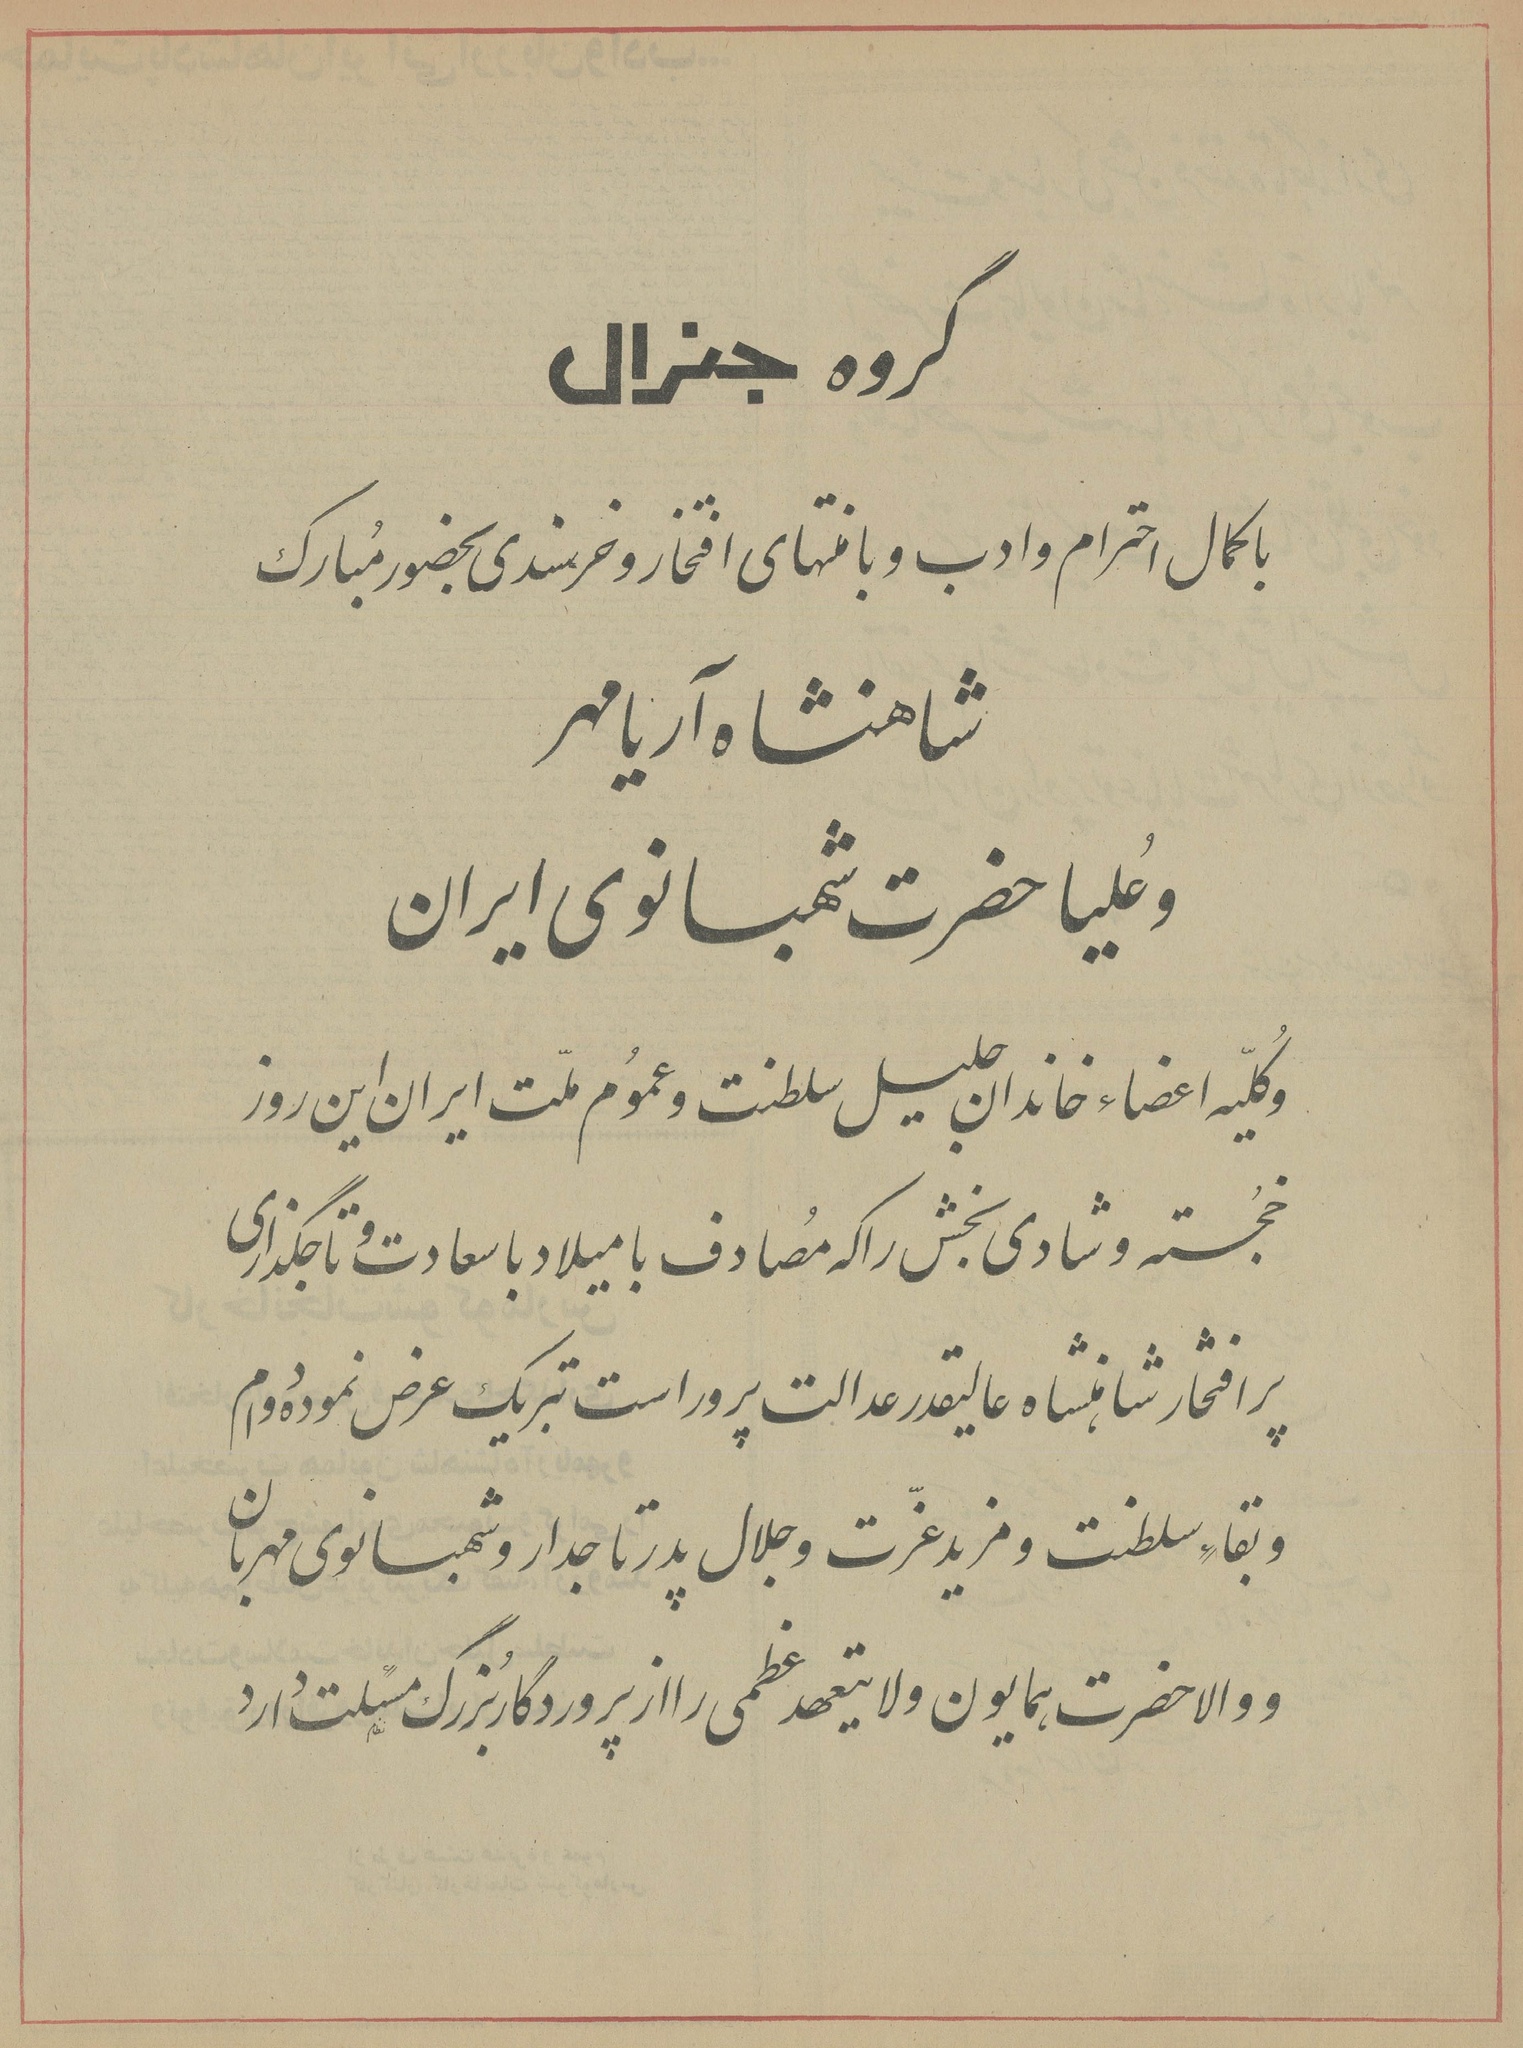 گروه جنرال
با کمال احترام و ادب و با منتهای افتخار و خرسندی بحضور مُبارک
شاهنشاه آریامهر
و عُلیا حضرت شهبانوی ایران
و کُلیّه اعضاء خاندان جلیل سلطنت و عمُوم ملّت ایران این روز
خجُسته و شادی بخش را که مُصادف با میلاد با سعادت و تاجگذاری
پر افتخار شاهنشاه عالیقدر عدالت پرور است تبریک عرض نموده دوام
و بقاءِ سلطنت و مزید عزّت و جلال پدر تاجدار و شهبانوی مهربان
و والاحضرت همایون ولایتعهد عظمی را از پروردگار بُزرگ مسئلت دارد